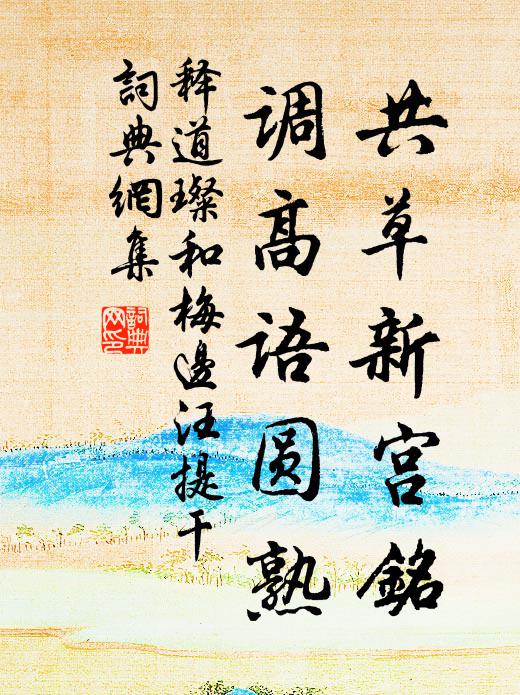 共草新宫銘
调高语圆熟
释道璨和梅邊汪提干
詞典網集
詞典網印